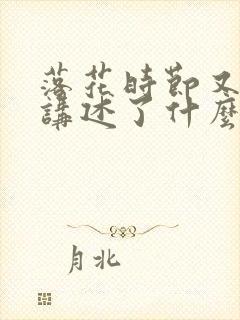 落花時節又
講述了什麼
月北